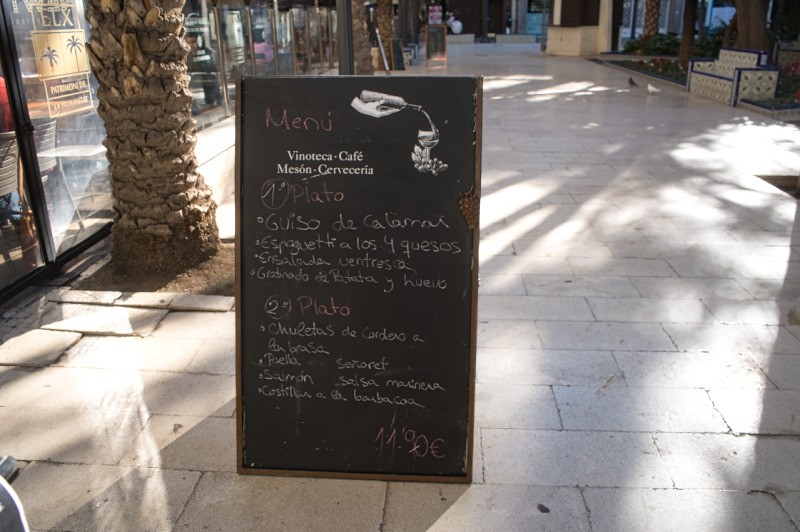 PATRIMONI DE
LA HUMANITAT
Menú
Vinoteca · Café
Mesón · Cervecería
1º Plato
Guiso de Calamar
Espaguetti a los 4 quesos
Ensalada ventresca
Gratinado de Patata y huevo
2º Plato
Chuletas de Cordero a
la brasa
Paella señoret
Salmón salsa marinera
Costillas a la barbacoa
11'90€